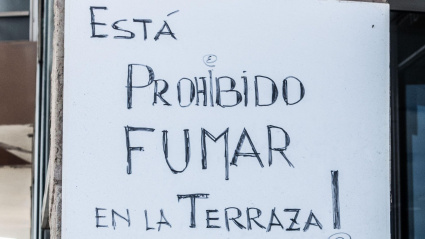 ESTÁ
PROHIBIDO
FUMAR
EN LA TERRAZA!